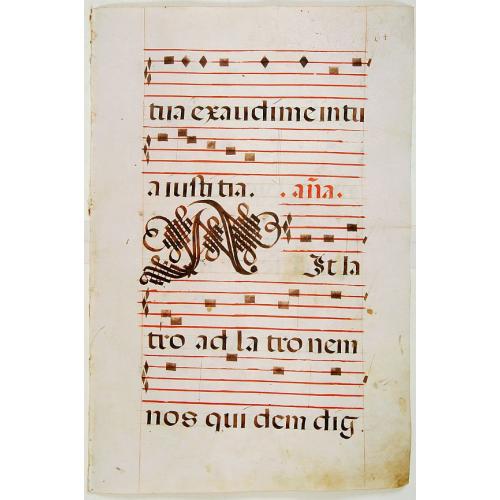 tua exaudi me in tu
a iusti tia. . aña.
A It la
tro ad la tro nem
nos qui dem dig